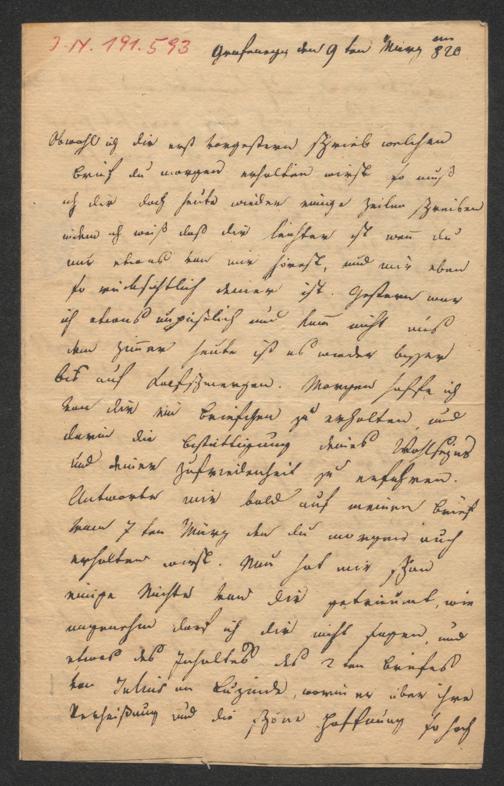 I. N. 191.593
Grafenegg den 9 ten März 820
Obwohl ich dir erst vorgestern schrieb welchen
Brief du morgen erhalten wirst so muß
ich dir doch heute wieder einige Zeilen schreiben
indem ich weiß daß dir leichter ist wenn du
nur etwas von mir hörest, und mir eben
so rücksichtlich deiner ist. Gestern war
ich etwas unpäßlich und kam nicht aus
dem Zimmer heute ist es wieder besser
bis auf Halsschmerzen. Morgen hoffe ich
von dir ein Briefchen zu erhalten und
darin die Bestättigung deines Wohlseyns
und deiner Zufriedenheit zu erfahren.
Antworte mir bald auf meinen Brief
vom 7 ten März den du morgen auch
erhalten wirst. Nun hat mir schon
einige Nächte von dir geträumt, wie
angenehm darf ich dir nicht sagen, und
etwas des Inhaltes des 2 ten Briefes
von Julius an Luzinde, worin er über ihre
Verheißung und die schöne Hoffnung so hoch